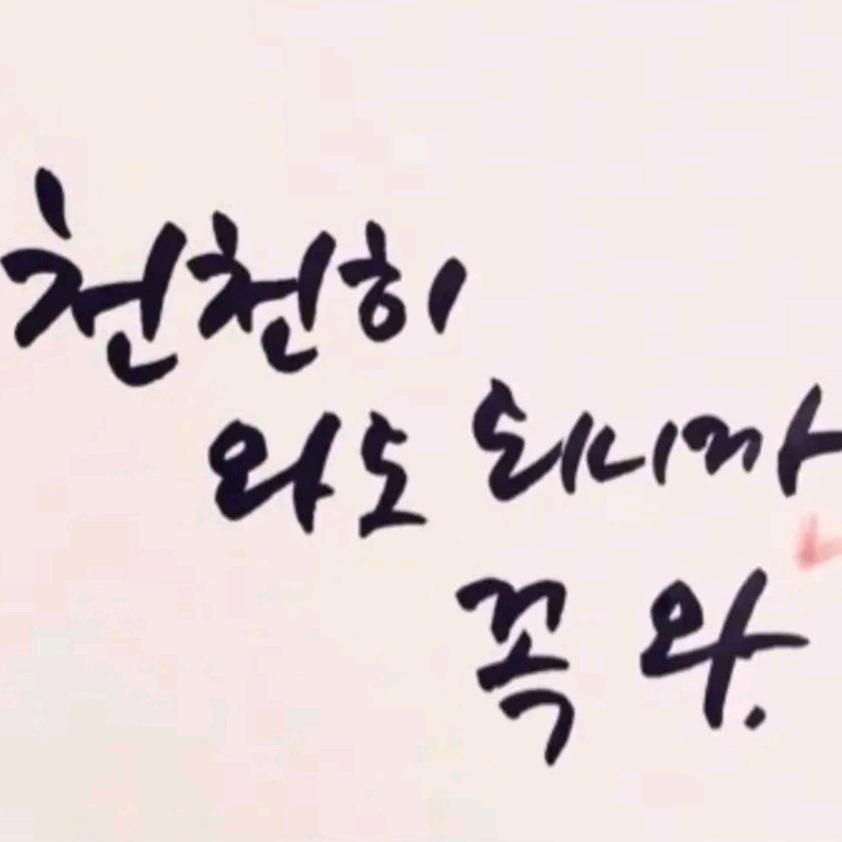 천천히
와도 되니까
꼭 와.